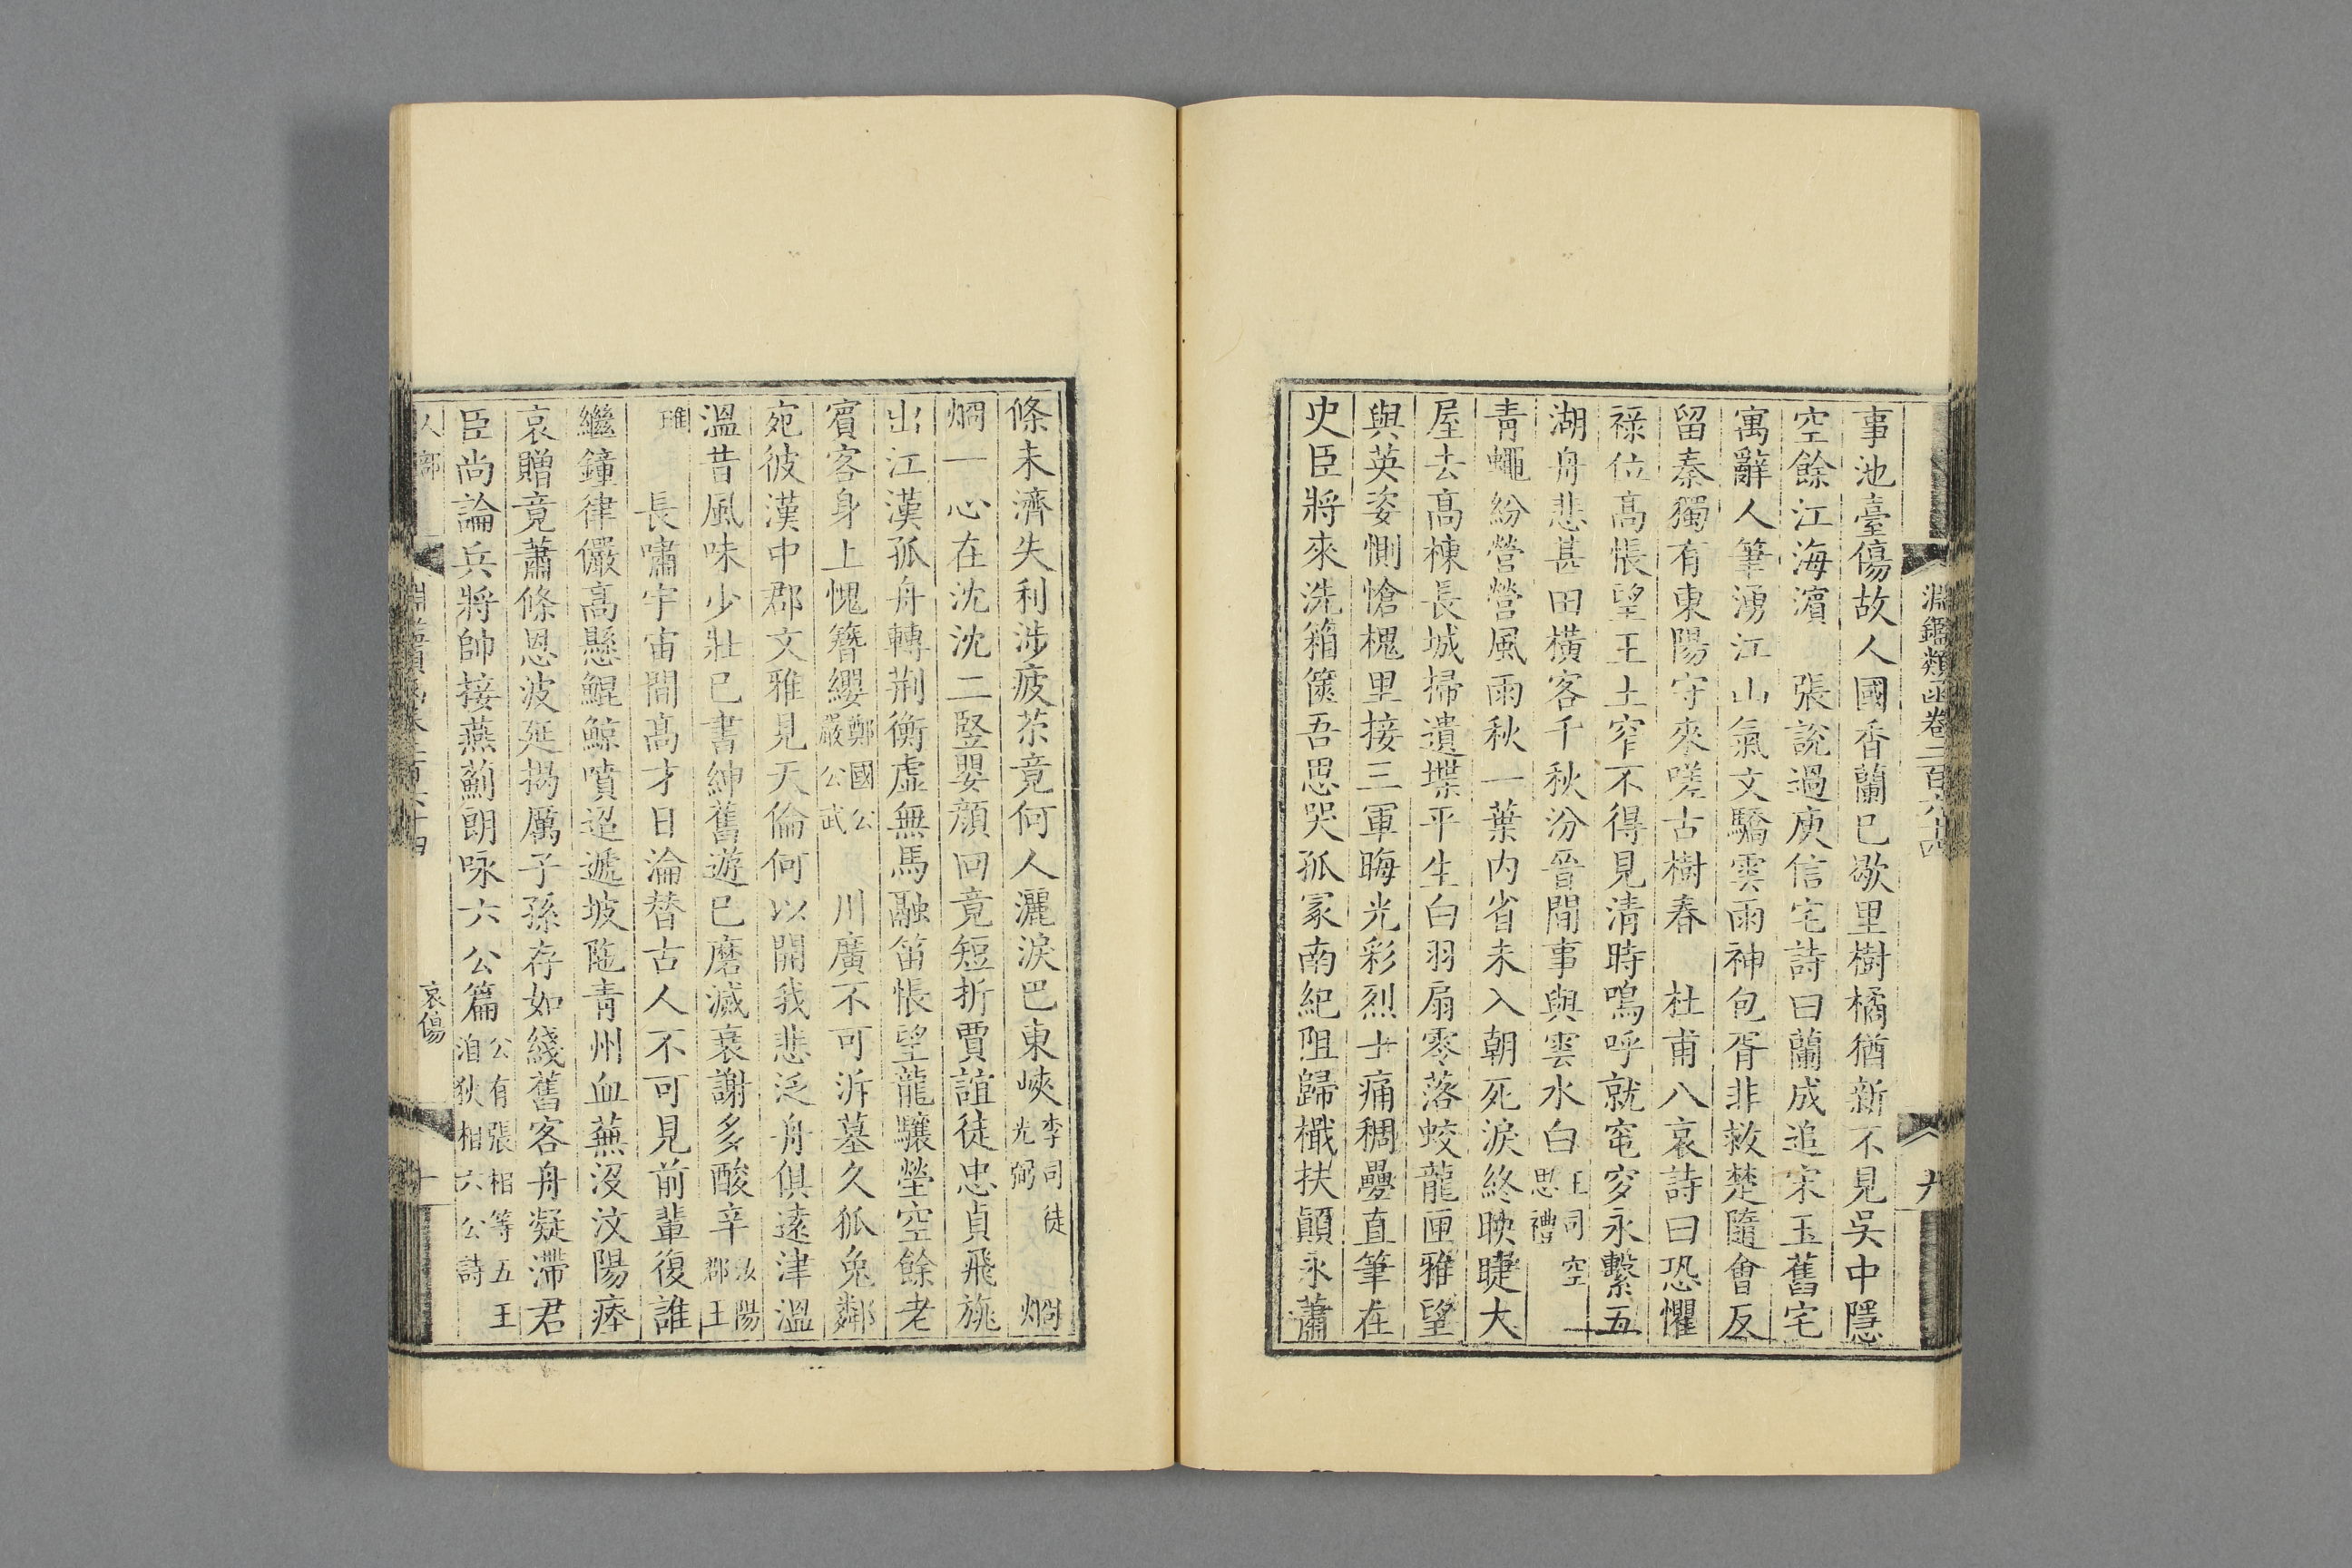 淵鑑類函卷二百六十四
九
事池臺傷故人國香蘭已歇里樹橘猶新不見吳中隱
空餘江海濱　張說過庾信宅詩曰蘭成追宋玉舊宅
寓辭人筆湧江山氣文驕雲雨神包胥非救楚隨會反
留秦獨有東陽守來嗟古樹春　杜甫八哀詩曰恐懼
祿位高悵望王土窄不得見清時嗚呼就窀穸永繫五
湖舟悲甚田橫客千秋汾晉間事與雲水白王司空思禮　一
青蠅紛營營風雨秋一葉內省未入朝死淚終映睫大
屋去高棟長城掃遺堞平生白羽扇零落蛟龍匣雅望
與英姿惻愴槐里接三軍晦光彩烈士痛稠疊直筆在
史臣將來洗箱篋吾思哭孤冢南紀阻歸檝扶顛永蕭
條未濟失利涉疲苶竟何人灑淚巴東峽李司徒光弼　烱
烱一心在沈沈二竪嬰顔回竟短折賈誼徒忠貞飛旐
出江漢孤舟轉荆衡虛無馬融笛悵望龍驤塋空餘老
賓客身上愧簪纓鄭國公嚴公武　川廣不可泝墓久狐兔鄰
宛彼漢中郡文雅見天倫何以開我悲泛舟俱遠津溫
溫昔風味少壯已書紳舊遊已磨滅衰謝多酸辛汝陽郡王
璡　長嘯宇宙間高才日淪替古人不可見前輩復誰
繼鐘律儼高懸鯤鯨噴迢遞坡陁青州血蕪沒汶陽瘞
哀贈竟蕭條恩波延揭厲子孫存如綫舊客舟凝滯君
臣尚論兵將帥接燕薊朗咏六公篇公有張相等五王洎狄相六公詩
人部
淵鑑類函卷二百六十四
哀傷
十